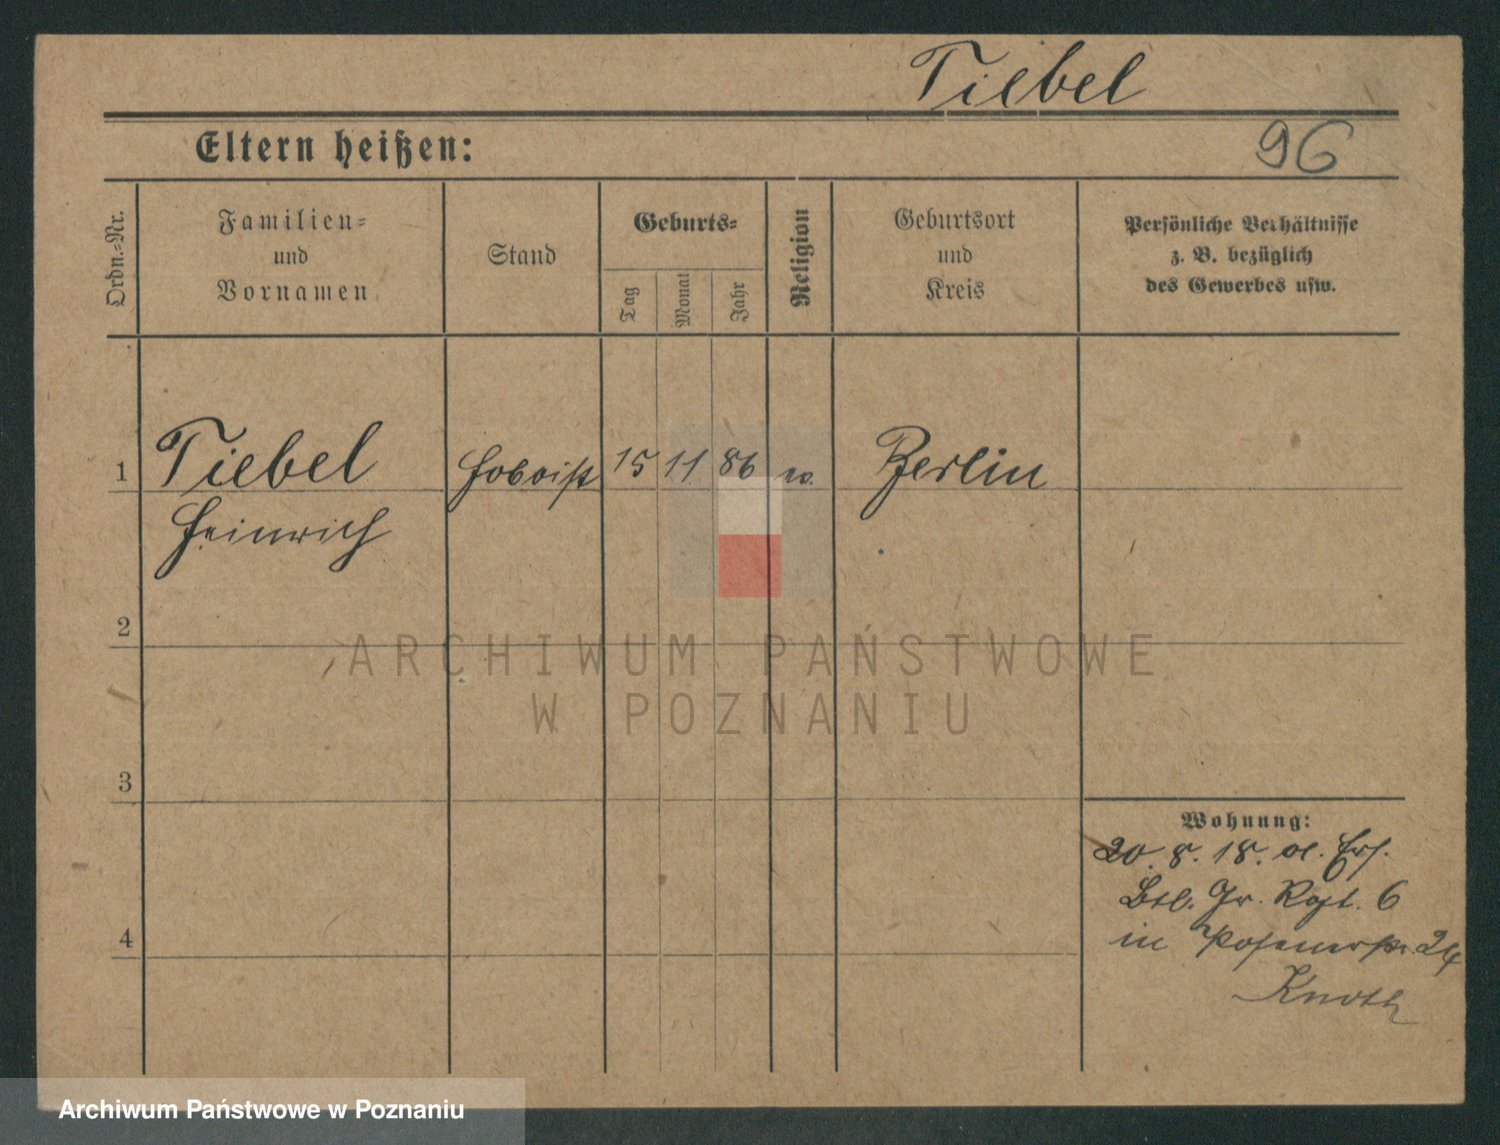 Tiebel
Eltern heißen:
96
Ordn.-Nr.
Familien-
und
Vornamen
Stand
Geburts-
Tag
Monat
Jahr
Religion
Geburtsort
und
Kreis
Persönliche Verhältnisse
z. B. bezüglich
des Gewerbes usw.
1
Tiebel
Hoboist
15
11
86
ev.
Berlin
Heinrich
2
ARCHIWUM PAŃSTWOWE
W POZNANIU
3
Wohnung:
20. 8. 18. Ers.
Btl. Gr. Rgt. 6
4
in Posenerstr. 24
Knoth
Archiwum Państwowe w Poznaniu